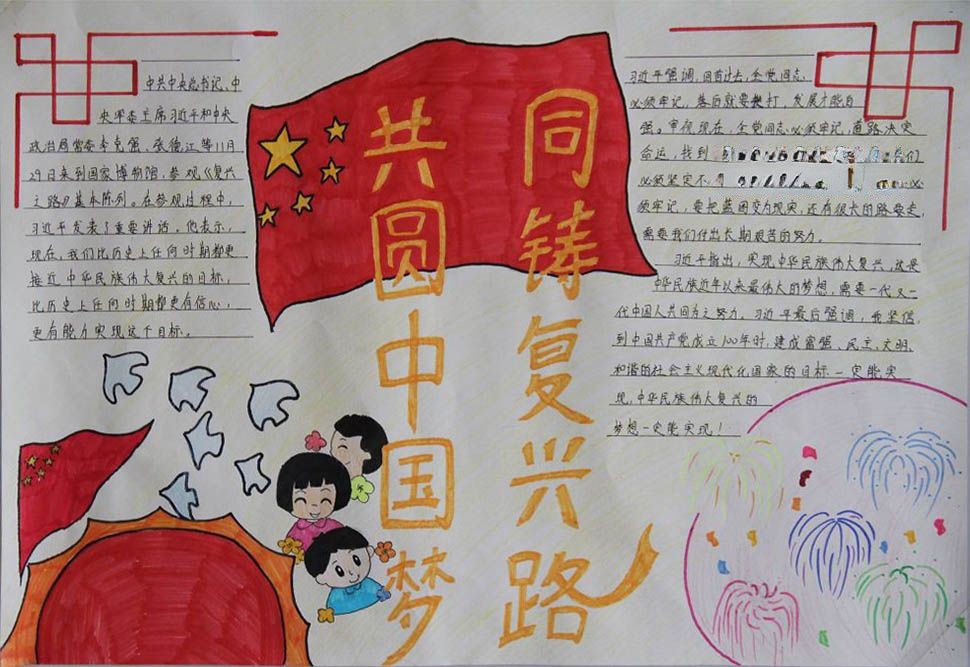 同铸复兴路
共圆中国梦
中共中央总书记、中
央军委主席习近平和中央
政治局常委李克强、张德江等11月
29日来到国家博物馆，参观《复兴
之路》基本陈列。在参观过程中，
习近平发表了重要讲话。他表示，
现在，我们比历史上任何时期都更
接近中华民族伟大复兴的目标，
比历史上任何时期都更有信心，
更有能力实现这个目标。
习近平强调，回首过去，全党同志
必须牢记，落后就要挨打，发展才能自
强。审视现在，全党同志必须牢记，道路决定
命运，找到
我们
必须坚定不
必
须牢记，要把蓝图变为现实，还有很大的路要走，
需要我们付出长期艰苦的努力。
习近平指出，实现中华民族伟大复兴，就是
中华民族近年以来最伟大的梦想，需要一代又一
代中国人共同为之努力。习近平最后强调，我坚信，
到中国共产党成立100年时，建成富强、民主、文明、
和谐的社会主义现代化国家的目标一定能实
现，中华民族伟大复兴的
梦想一定能实现！